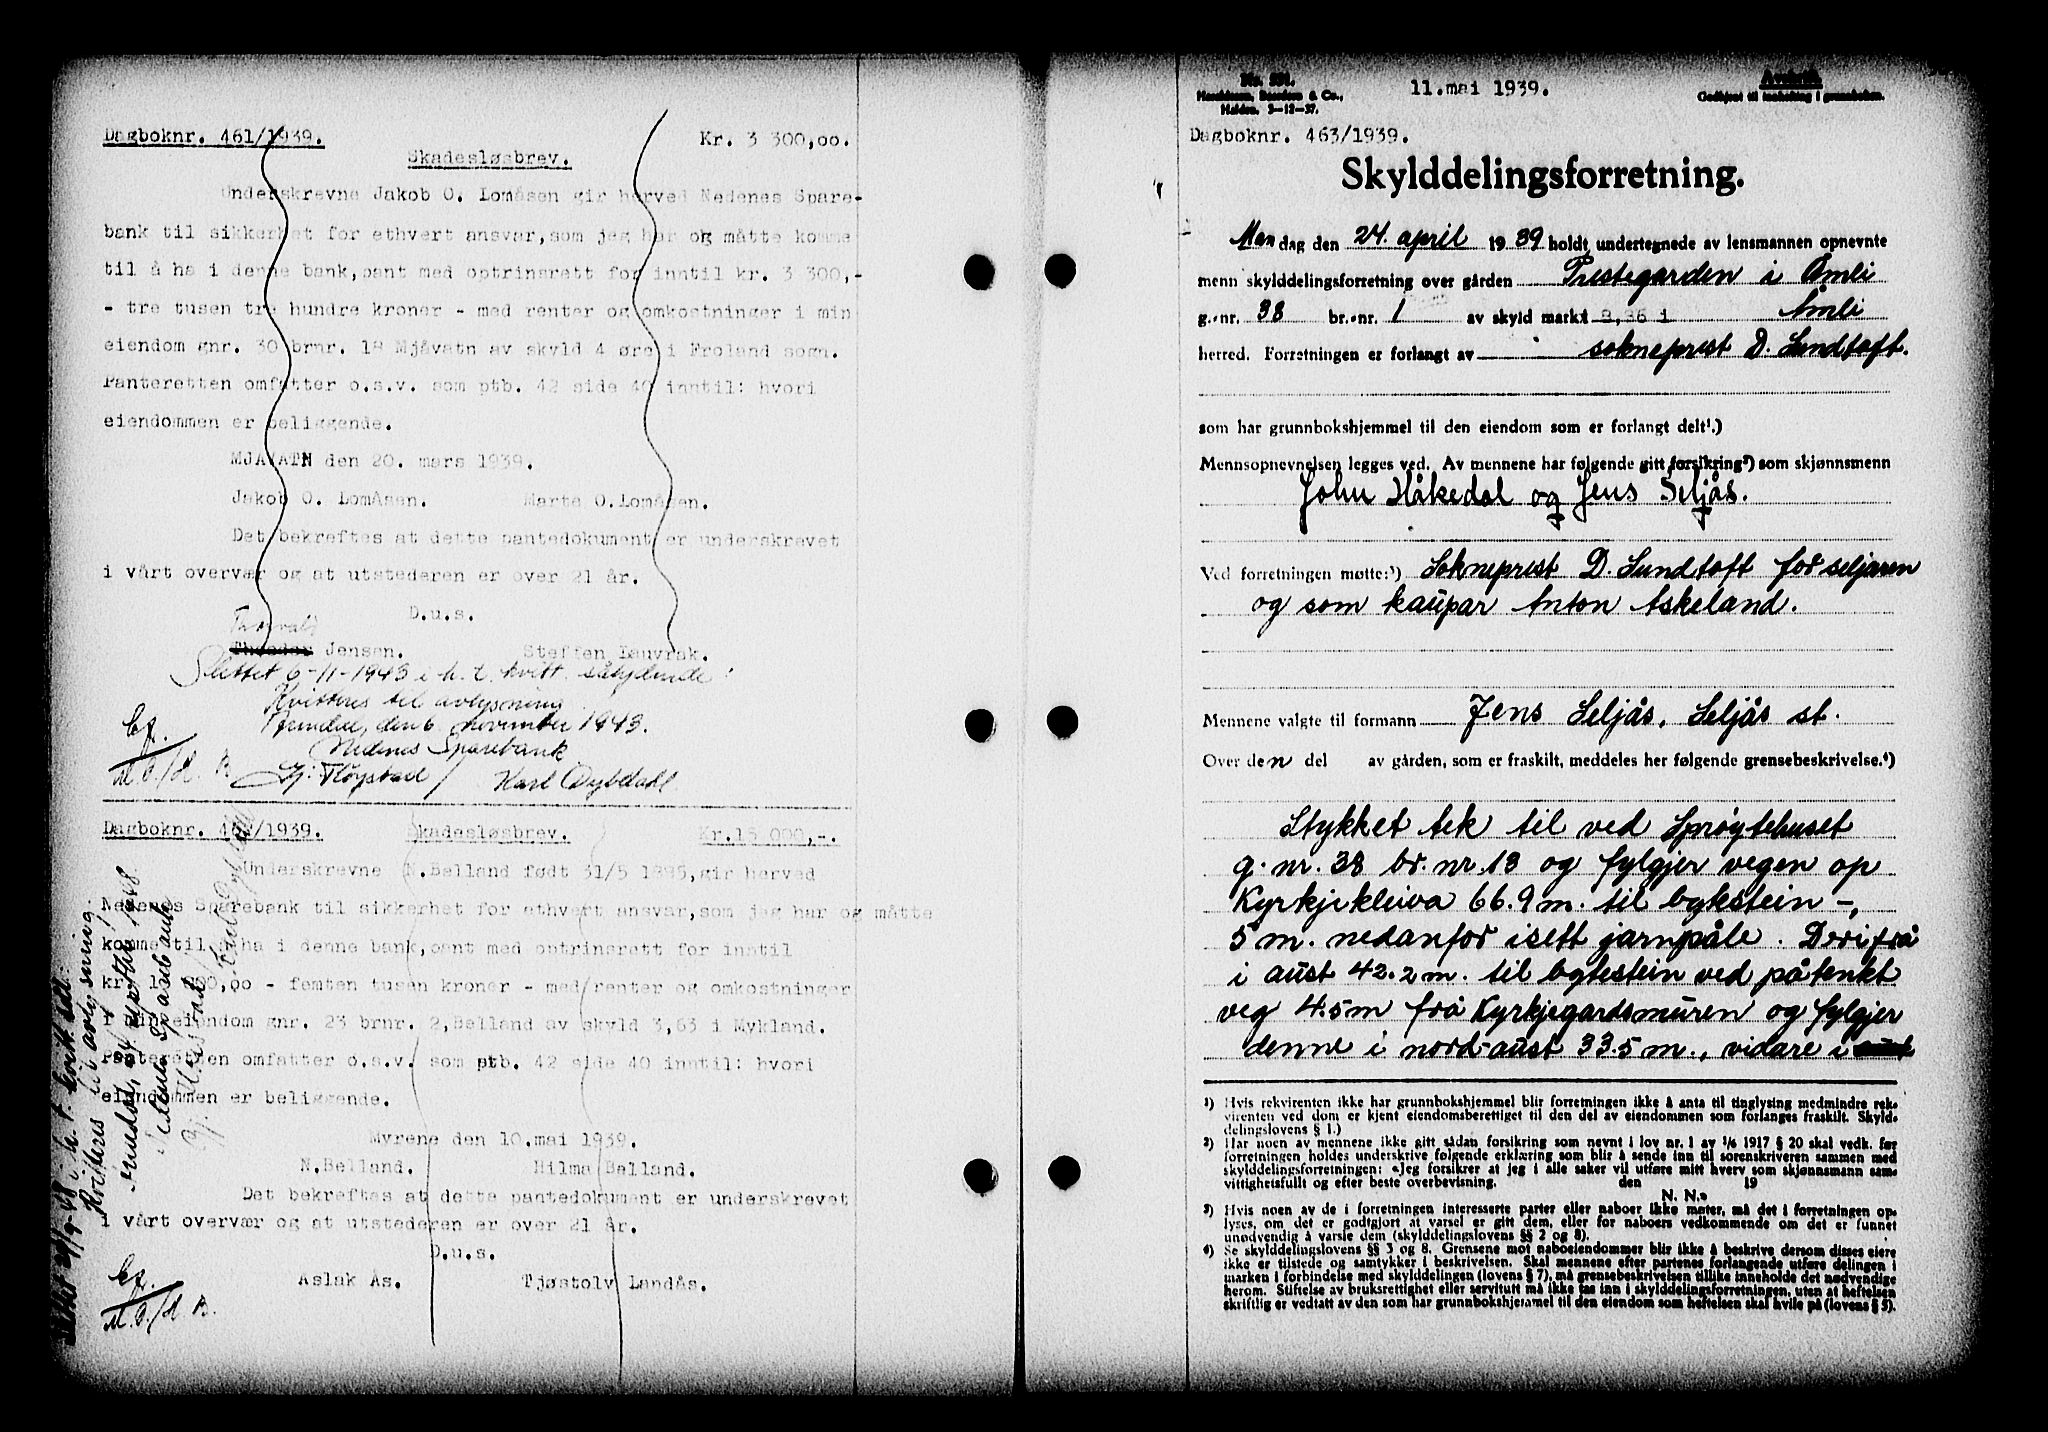 Dagboknr. 461/1939. Kr. 3 300,oo.
Skadesløsbrev.
Underskrevne Jakob O. Lomåsen gir herved Nedenes Spare-
bank til sikkerhet for ethvert ansvar,som jeg har og måtte komme
til å ha i denne bank,pant med optrinsrett for inntil kr. 3 300,-
- tre tusen tre hundre kroner - med renter og omkostninger i min
eiendom gnr. 30 brnr. 18 Mjåvatn av skyld 4 øre i Froland sogn.
Panteretten omfatter o.s.v. som ptb. 42 side 40 inntil: hvori
eiendommen er beliggende.
MJAVATN den 20. mars 1939.
Jakob O. Lomåsen. Marte O.Lomåsen.
Det bekreftes at dette pantedokument er underskrevet
i vårt overvær og at utstederen er over 21 år.
D.u.s.
Thorvald
Theodor Jensen. Steffen Lauvrak.
Slettet 6-11-1943 i h. t. kvitt. sålydende:
Kvitteres til avlysning
Arendal, den 6. november 1943.
Nedenes Sparebank
Gj. Fløystad / Karl Dybdahl
Dagboknr. 462/1939. Skadesløsbrev. Kr.15 000,-.
Underskrevne N.Belland født 31/5 1895,gir herved
Nedenes Sparebank til sikkerhet for ethvert ansvar,som jeg har og måtte
komme til å ha i denne bank,pant med optrinsrett for inntil
kr. 15 000,oo - femten tusen kroner - med renter og omkostninger
i min eiendom gnr. 23 brnr. 2,Belland av skyld 3,63 i Mykland.
Panteretten omfatter o.s.v. som ptb. 42 side 40 inntil: hvori
eiendommen er beliggende.
Myrene den 10.mai 1939.
N.Belland. Hilma Belland.
Det bekreftes at dette pantedokument er underskrevet
i vårt overvær og at utstederen er over 21 år.
D.u.s.
Aslak Ås. Tjøstolv Landås.
Kvitteres til avlysning.
Nedenes Sparebank
No. 531. 11.mai 1939. Avskrift.
Halden. 3-12-37. Godkjent til innhefting i grunnboken.
Dagboknr. 463/1939.
Skylddelingsforretning.
Mandag den 24. april 1939 holdt undertegnede av lensmannen opnevnte
menn skylddelingsforretning over gården Prestegarden i Åmli
g.-nr. 38 br.-nr. 1 av skyld mark 8,86 i Åmli
herred. Forretningen er forlangt av sokneprest D. Sundtoft.
som har grunnbokshjemmel til den eiendom som er forlangt delt¹.)
Mennsopnevnelsen legges ved. Av mennene har følgende gitt forsikring²) som skjønnsmenn
John Håkedal og Jens Seljås.
Ved forretningen møtte:³) Sokneprest D. Sundtoft for seljaren
og som kaupar Anton Askeland.
Mennene valgte til formann Jens Seljås, Seljås st.
Over den del av gården, som er fraskilt, meddeles her følgende grensebeskrivelse.⁴)
Stykket tek til ved Sprøytehuset
g. nr. 38 br. nr. 13 og fylgjer vegen op
Kyrkjekleiva 66.9 m. til bytestein -,
5 m. nedanfor isett jarnpåle. Derifrå
i aust 42.2 m. til bytestein ved påtenkt
veg 4.5 m frå Kyrkjegardsmuren og fylgjer
denne i nord-aust 33.5 m., vidare i aust
¹) Hvis rekvirenten ikke har grunnbokshjemmel blir forretningen ikke å anta til tinglysing medmindre rek-
virenten ved dom er kjent eiendomsberettiget til den del av eiendommen som forlanges fraskilt. Skyld-
delingslovens § 1.)
²) Har noen av mennene ikke gitt sådan forsikring som nevnt i lov nr. 1 av 1/6 1917 § 20 skal vedk. før
forretningen holdes underskrive følgende erklæring som blir å sende inn til sorenskriveren sammen med
skylddelingsforretningen: «Jeg forsikrer at jeg i alle saker vil utføre mitt hverv som skjønnsmann sam-
vittighetsfullt og efter beste overbevisning. den 19
N. N.»
³) Hvis noen av de i forretningen interesserte parter eller naboer ikke møter, må det i forretningen op-
lyses, om det er godtgjort at varsel er gitt dem, eller for naboers vedkommende om det er funnet
unødvendig å varsle dem (skylddelingslovens §§ 2 og 8).
⁴) Se skylddelingslovens §§ 3 og 8. Grensene mot naboeiendommer blir ikke å beskrive dersom disses eiere
ikke er tilstede og samtykker i beskrivelsen. Skal mennene efter partenes forlangende utføre delingen i
marken i forbindelse med skylddelingen (lovens § 7), må grensebeskrivelsen tillike inneholde det nødvendige
herom. Stiftelse av bruksrettighet eller servitutt må ikke tas inn i skylddelingsforretningen, uten at heftelsen
skriftlig er vedtatt av den som har grunnbokshjemmel til den eiendom som heftelsen skal hvile på (lovens § 5).